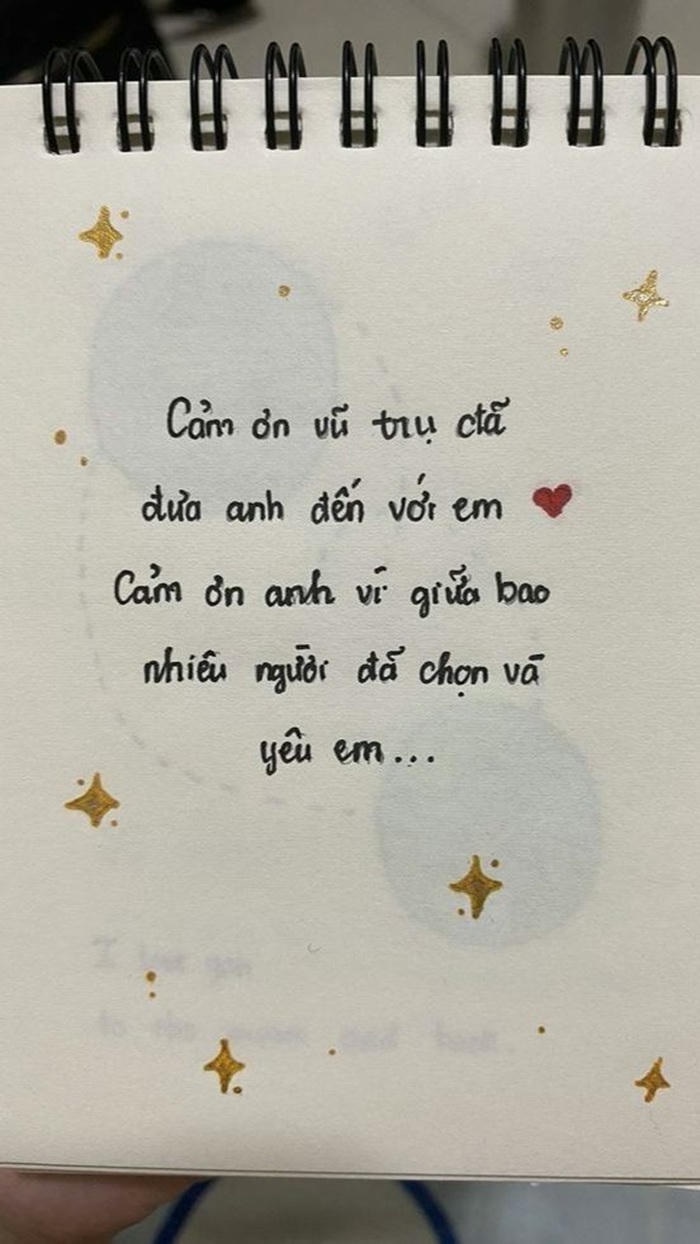 Cảm ơn vũ trụ đã
đưa anh đến với em
Cảm ơn anh vì giữa bao
nhiêu người đã chọn và
yêu em...
I love you
to the moon and back.